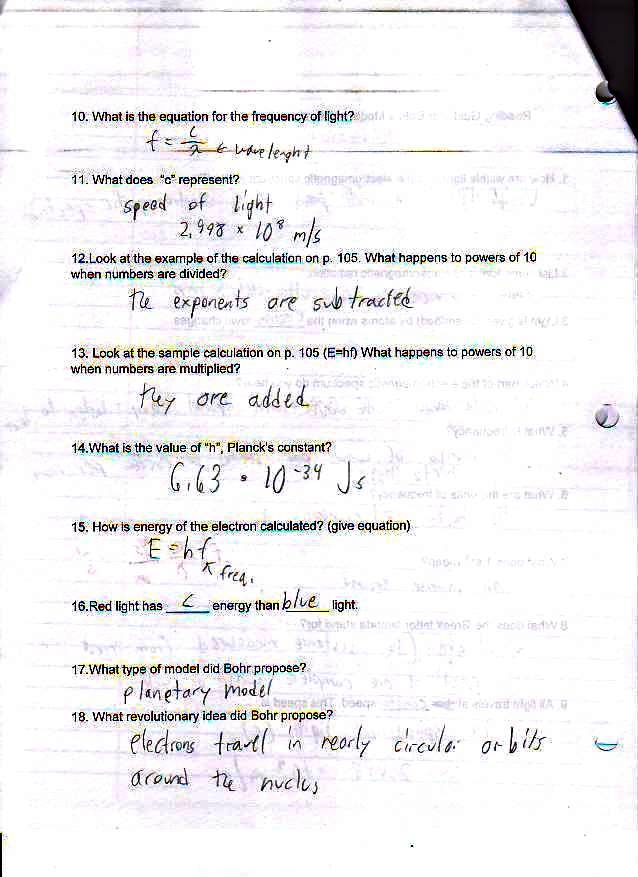 10. What is the equation for the frequency of light?
f = c/λ ← wavelenght
11. What does "c" represent?
speed of light
2,998 x 10⁸ m/s
12.Look at the example of the calculation on p. 105. What happens to powers of 10
when numbers are divided?
the exponents are subtracted
13. Look at the sample calculation on p. 105 (E=hf) What happens to powers of 10
when numbers are multiplied?
they are added
14.What is the value of "h", Planck's constant?
6.63 • 10⁻³⁴ Js
15. How is energy of the electron calculated? (give equation)
E = hf
↖ freq.
16.Red light has < energy than blue light.
17.What type of model did Bohr propose?
planetary model
18. What revolutionary idea did Bohr propose?
electrons travel in nearly circular orbits
around the nucleus